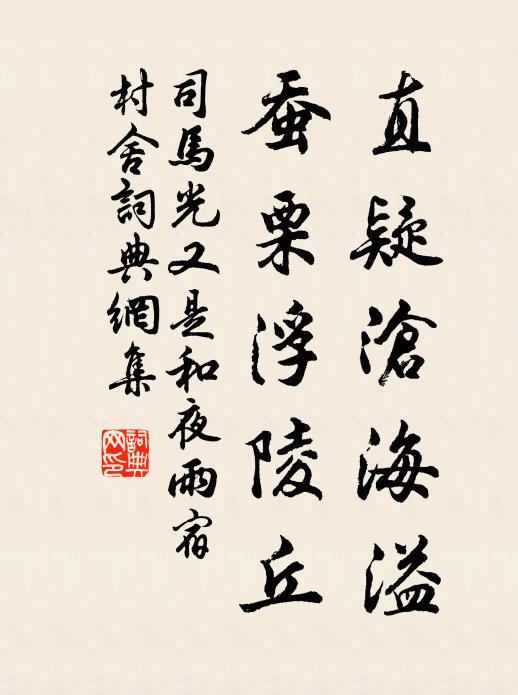 直疑滄海溢
蚕栗浮陵丘
司馬光又是和夜雨宿
村舍詞典網集
詞典网印